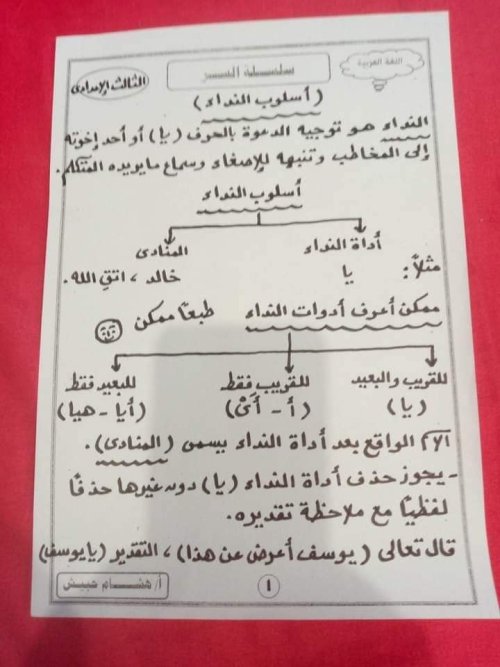 اللغة العربية
سلسلة الفسر
الثالث الإعدادى
(أسلوب النداء)
النداء هو توجيه الدعوة بالحرف (يا) أو أحد إخوته
إلى المخاطب وتنبهه للإصغاء وسماع مايريده المتكلم.
أسلوب النداء
أداة النداء المنادى
مثلاً: يا خالد، اتق الله.
ممكن أعرف أدوات النداء طبعاً ممكن
للقريب والبعيد للقريب فقط للبعيد فقط
(يا) (أ - أىْ) (أيا - هيا)
الاسم الواقع بعد أداة النداء يسمى (المنادى).
- يجوز حذف أداة النداء (يا) دون غيرها حذفًا
لفظيًا مع ملاحظة تقديره.
قال تعالى (يوسف أعرض عن هذا)، التقدير (يايوسف)
١
أ/ هشام حبيش